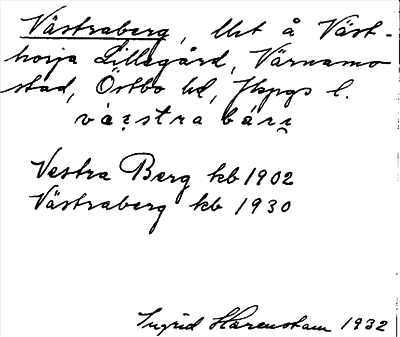 Västraberg, Uet å Väst-
horja Lillegård, Värnamo
stad, Östbo hd, Jkpgs l.
va̤i̤stra bári̤
Vestra Berg kb 1902
Västraberg kb 1930
Ingrid Harenstam 1932